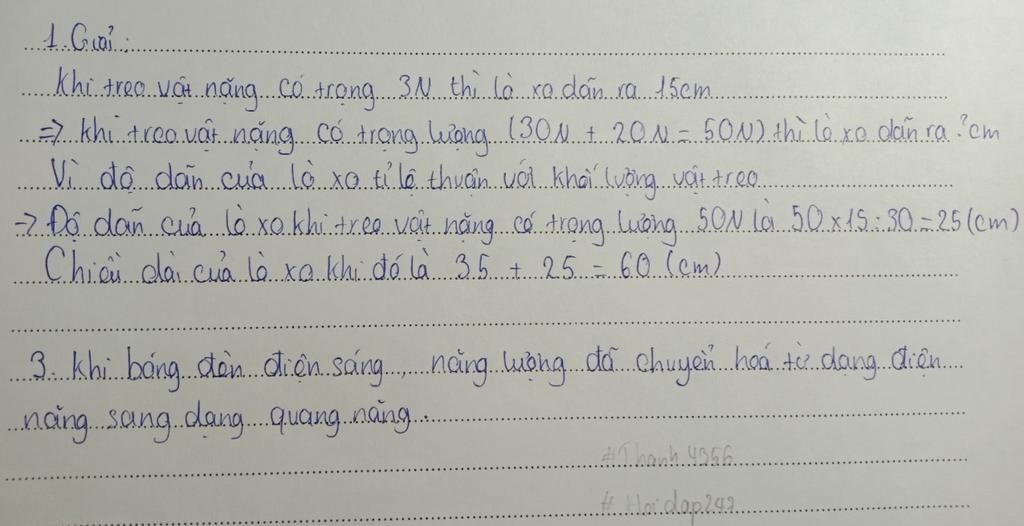 1. Giải:
Khi treo vật nặng có trọng 3N thì lò xo dãn ra 15cm
=> khi treo vật nặng có trọng lượng (30N + 20N = 50N) thì lò xo dãn ra ? cm
Vì độ dãn của lò xo tỉ lệ thuận với khối lượng vật treo
=> Độ dãn của lò xo khi treo vật nặng có trọng lượng 50N là 50 x 15 : 30 = 25 (cm)
Chiều dài của lò xo khi đó là 35 + 25 = 60 (cm)
3. Khi bóng đèn điện sáng, năng lượng đã chuyển hoá từ dạng điện
năng sang dạng quang năng.
#Thanh4356
#Hoidap247